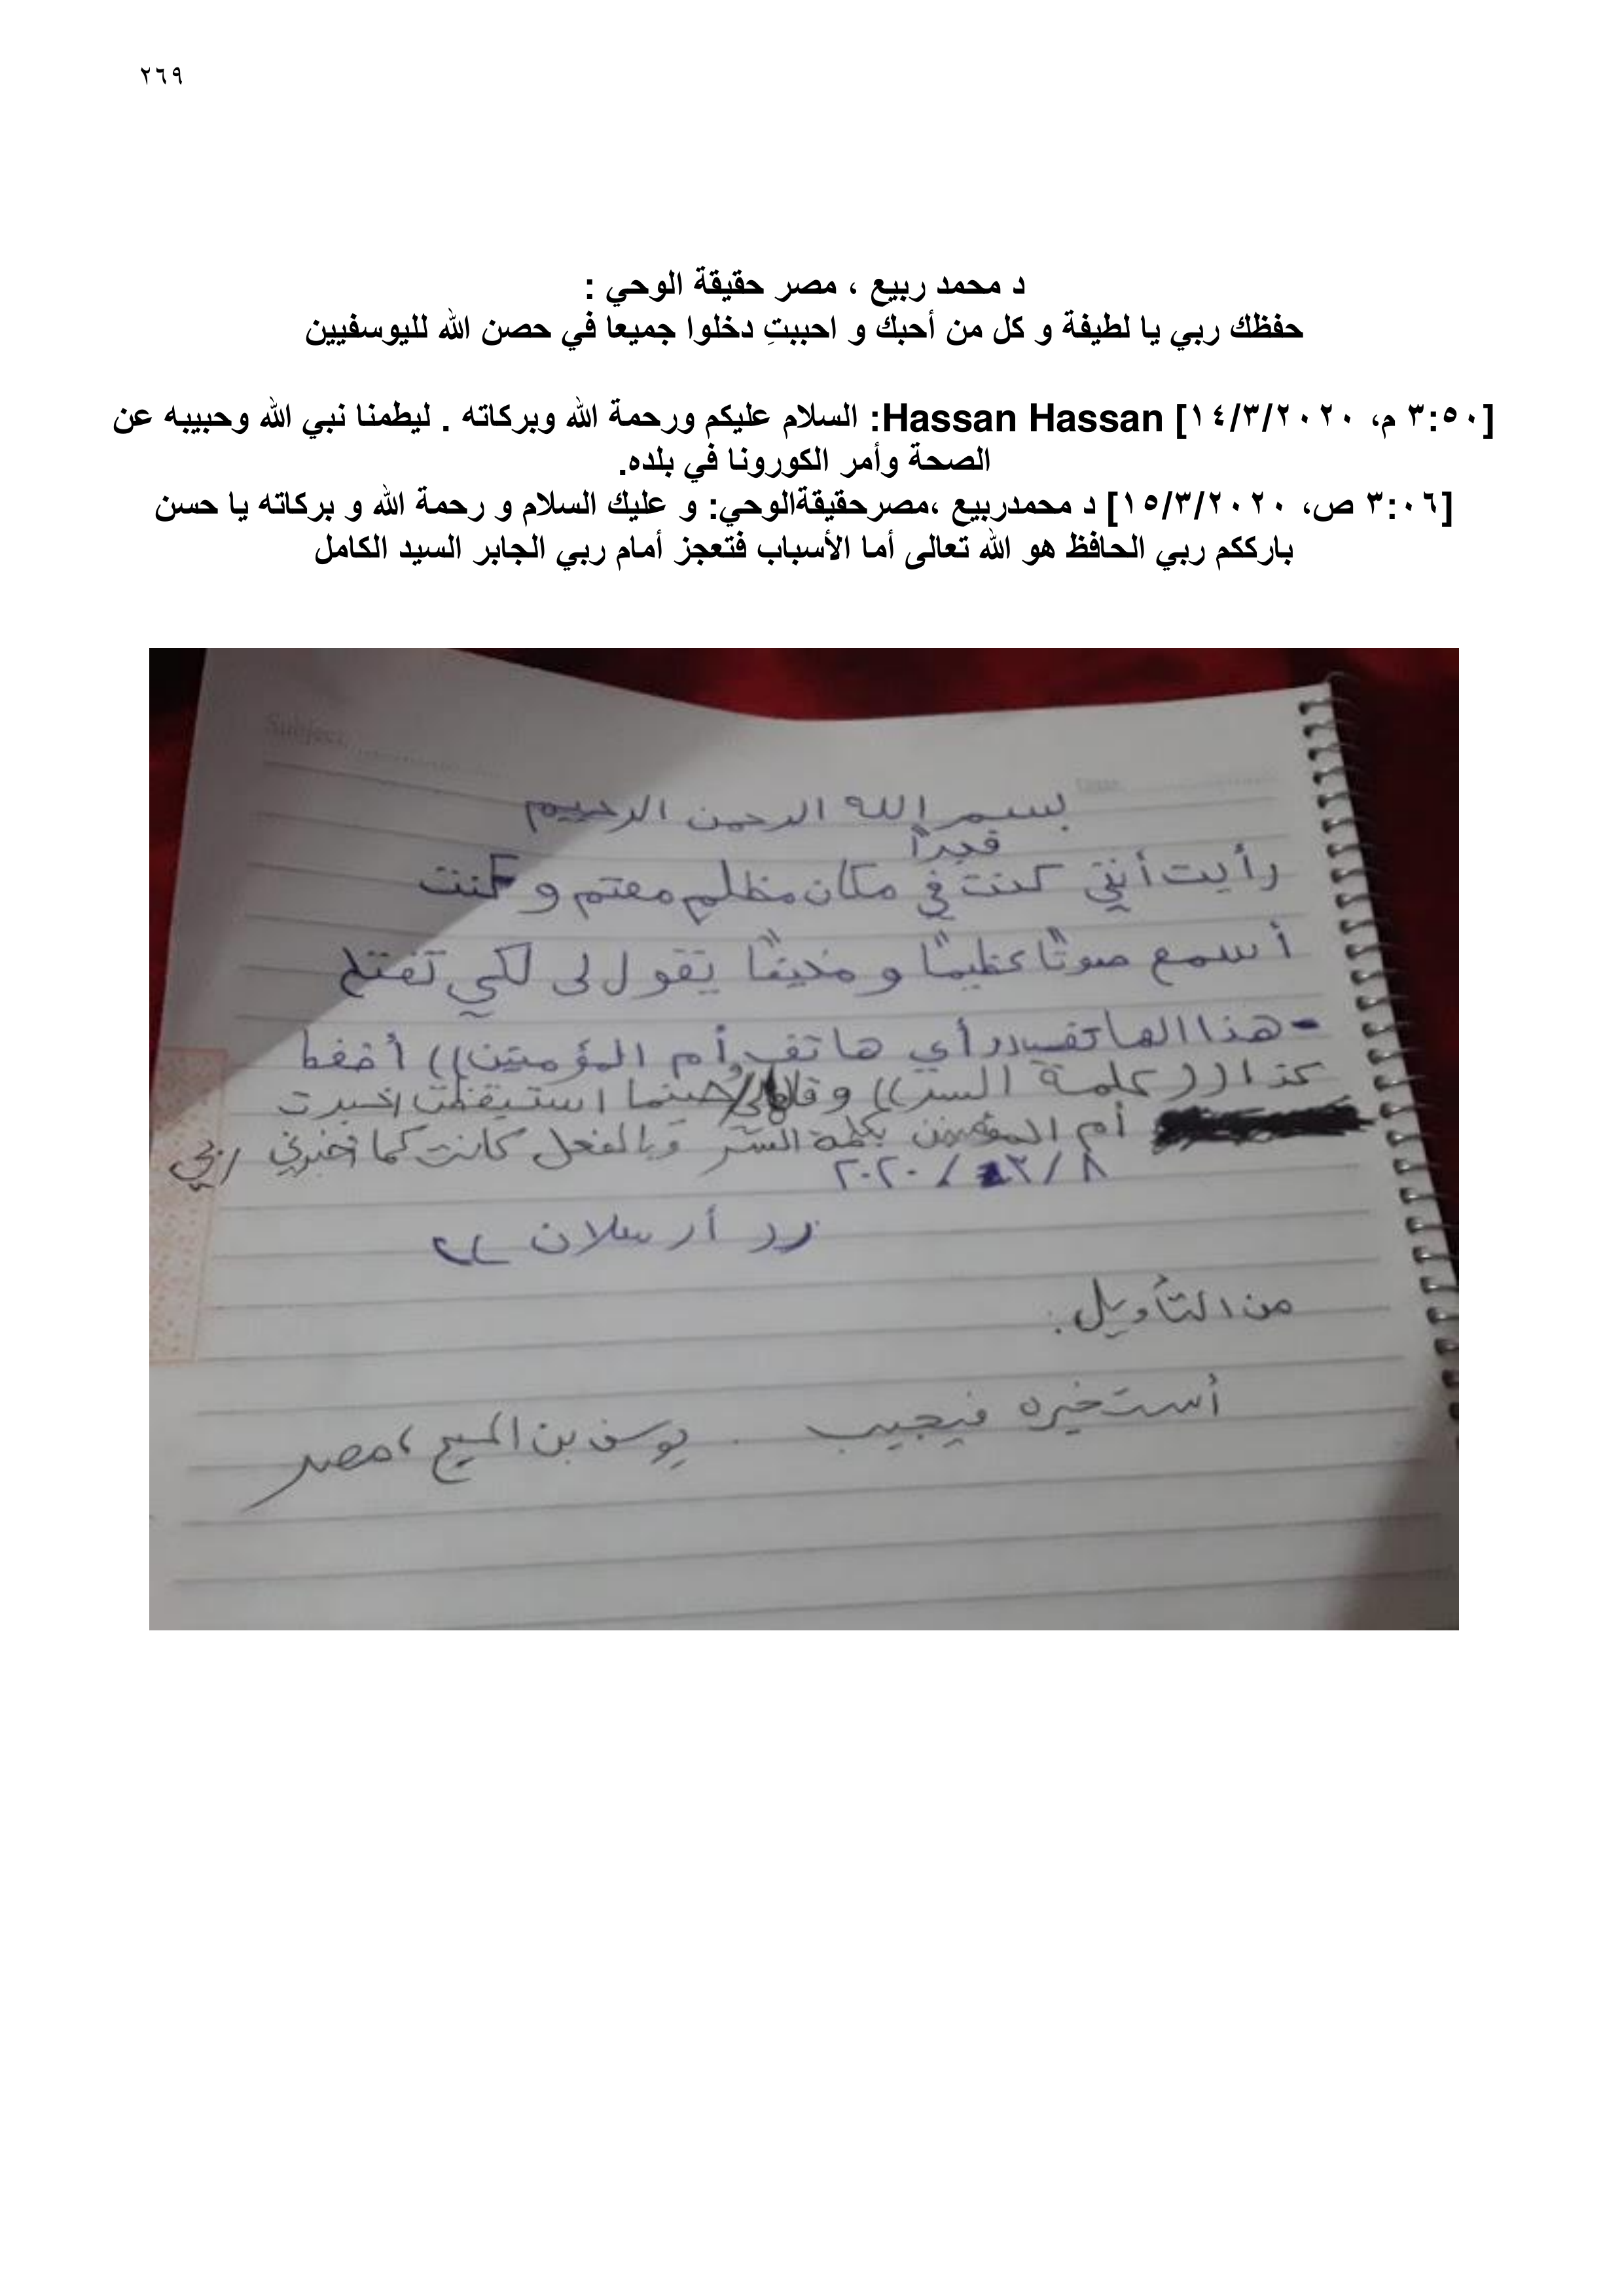 ٢٦٩
د محمد ربيع ، مصر حقيقة الوحي :
حفظك ربي يا لطيفة و كل من أحبك و احببتِ دخلوا جميعا في حصن الله لليوسفيين
[٣:٥٠ م، ١٤/٣/٢٠٢٠] Hassan Hassan: السلام عليكم ورحمة الله وبركاته . ليطمنا نبي الله وحبيبه عن
الصحة وأمر الكورونا في بلده.
[٣:٠٦ ص، ١٥/٣/٢٠٢٠] د محمدربيع ،مصرحقيقةالوحي: و عليك السلام و رحمة الله و بركاته يا حسن
بارككم ربي الحافظ هو الله تعالى أما الأسباب فتعجز أمام ربي الجابر السيد الكامل
Subject
Date
بسم الله الرحمن الرحيم
فجراً
رأيت أنني كنت في مكان مظلم معتم و كنت
أسمع صوتًا عظيمًا و مخيفًا يقول لى لكي تفتح
- هذا الهاتف ((أي هاتف أم المؤمنين)) أضغط
كذا ((كلمة السر)) وقالها لي حينما استيقظت اخبرت
أم المؤمنين بكلمة السر و بالفعل كانت كما أخبرني ربي
٨ / ٣ / ٢٠٢٠
أرسلان
من التأويل :
أستخيره فيجيب . يوسف بن المسيح ، مصر